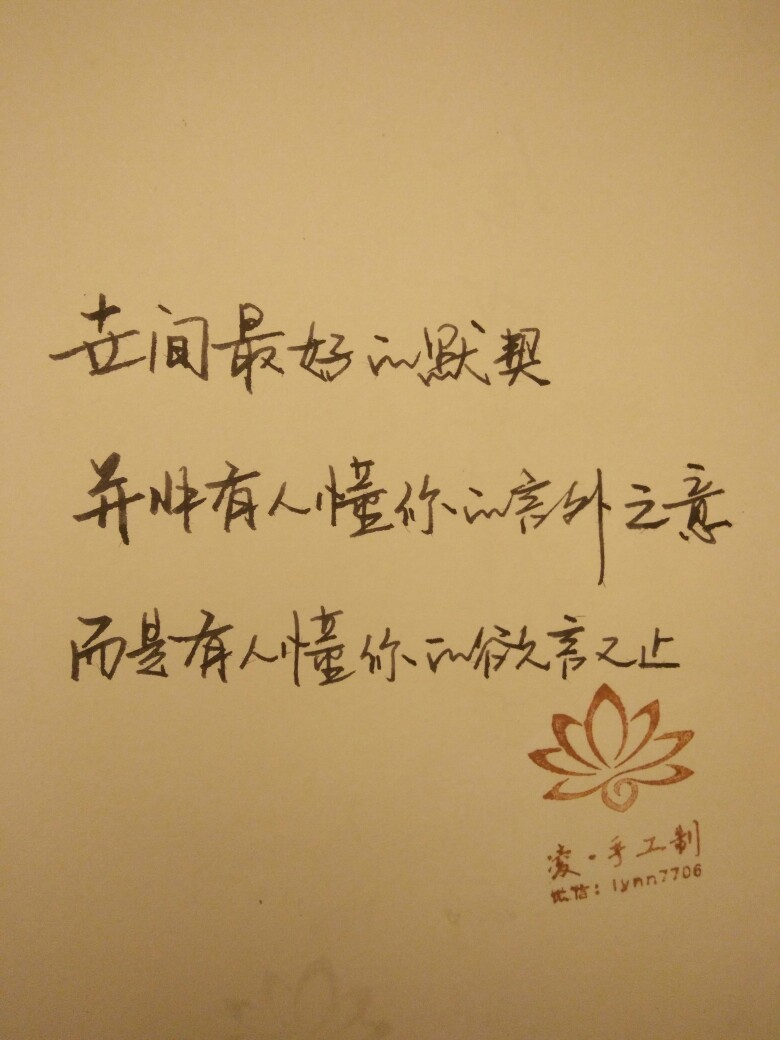 世间最好的默契
并非有人懂你的言外之意
而是有人懂你的欲言又止
凌·手工制
微信：lynn7706